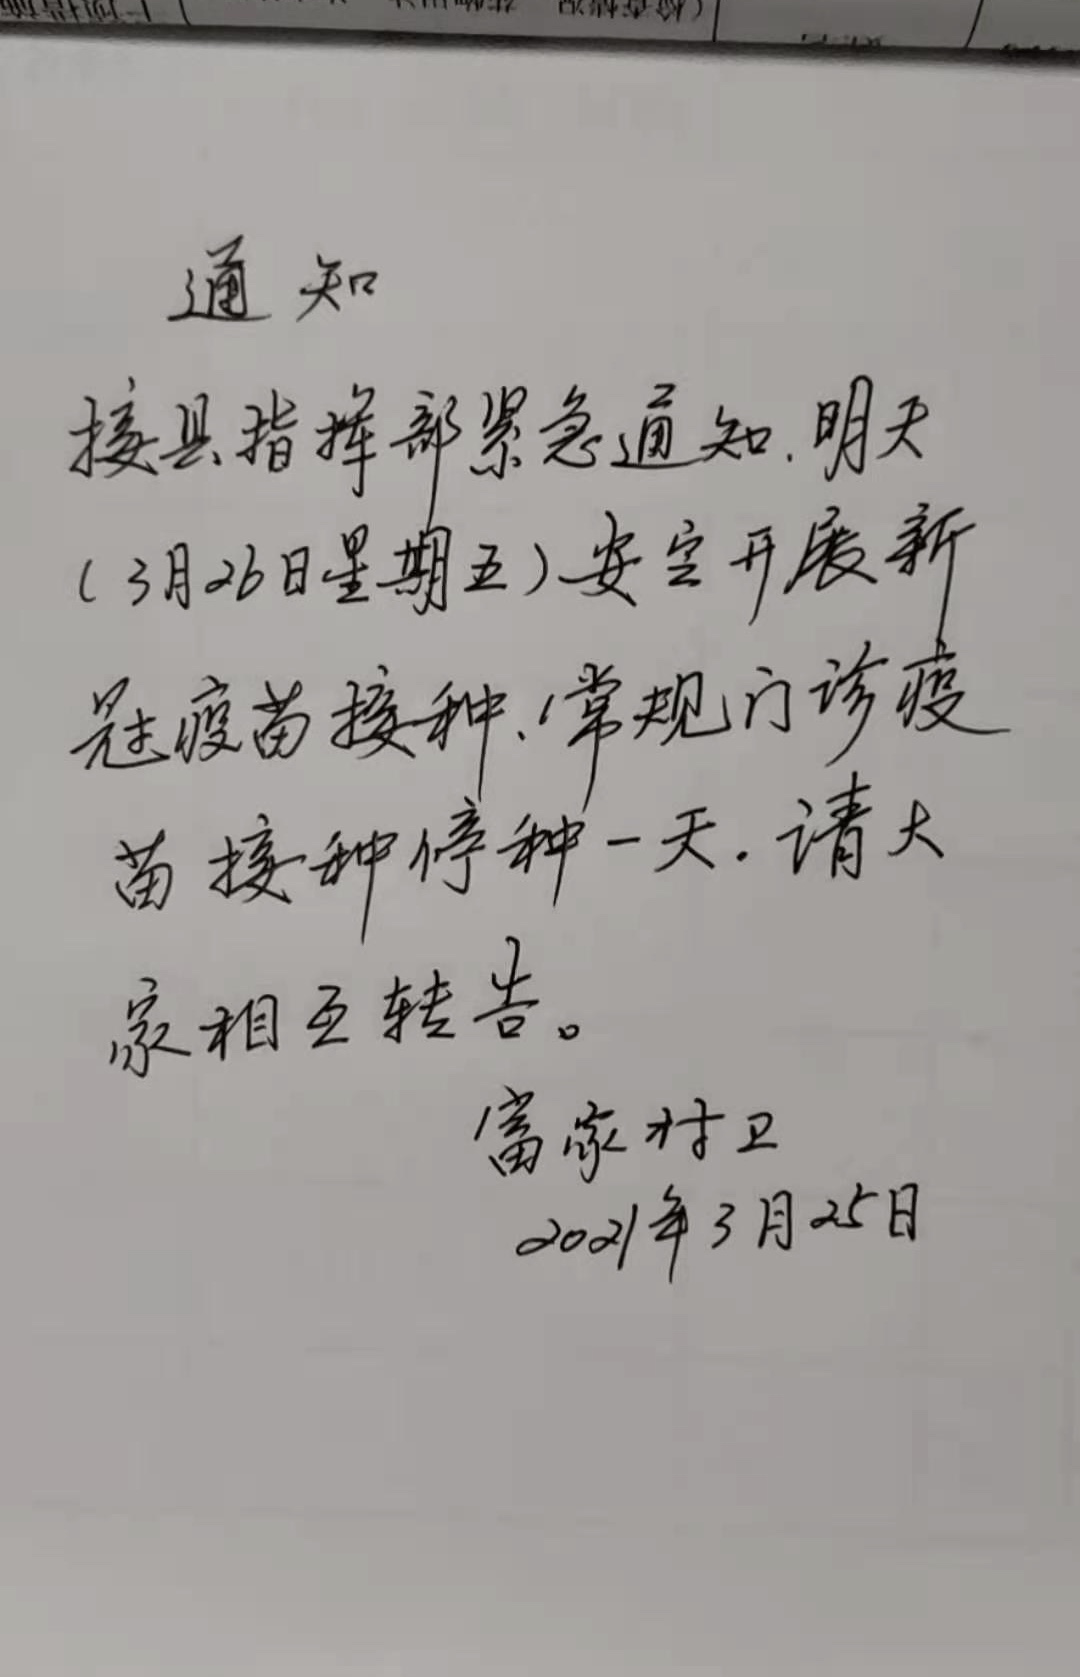 通知
接县指挥部紧急通知.明天
(3月26日星期五)安定开展新
冠疫苗接种,常规门诊疫
苗接种停种一天.请大
家相互转告。
富家村卫
2021年3月25日